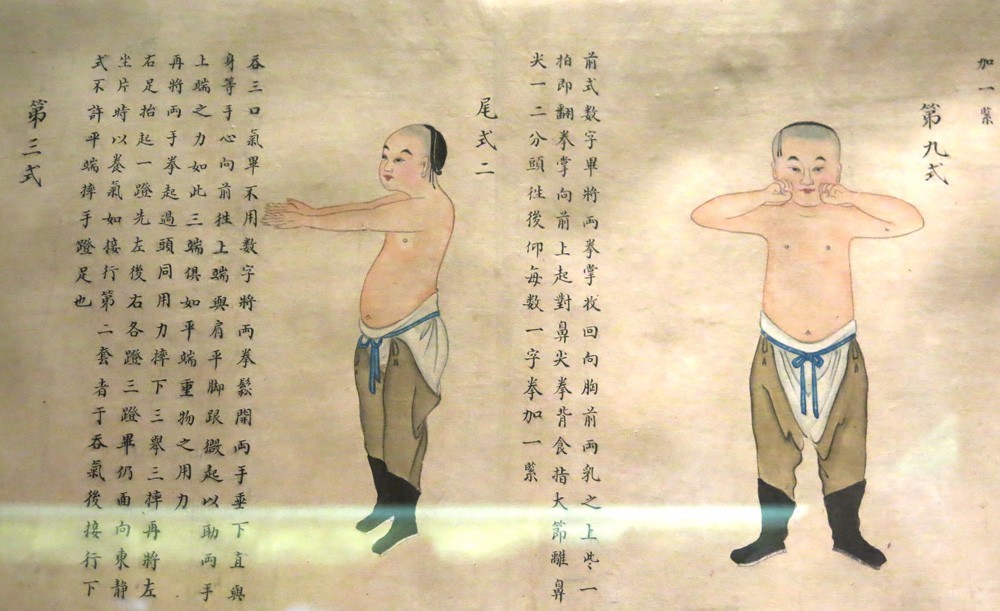 加一緊
第九式
前式数字畢將両拳掌收回向胸前両乳之上些一
拍即翻拳掌向前上起對鼻尖拳背食指大節離鼻
尖一二分頭徃後仰每数一字拳加一緊
尾式二
吞三口氣畢不用数字將両拳鬆開両手垂下直與
身等手心向前徃上端與肩平脚跟微起以助両手
上端之力如此三端俱如平端重物之用力
再將両手拳起過頭同用力摔下三舉三摔再將左
右足抬起一蹬先左後右各蹬三蹬畢仍面向東静
坐片時以養氣如接行第二套者于吞氣後接行下
式不許平端摔手蹬足也
第三式